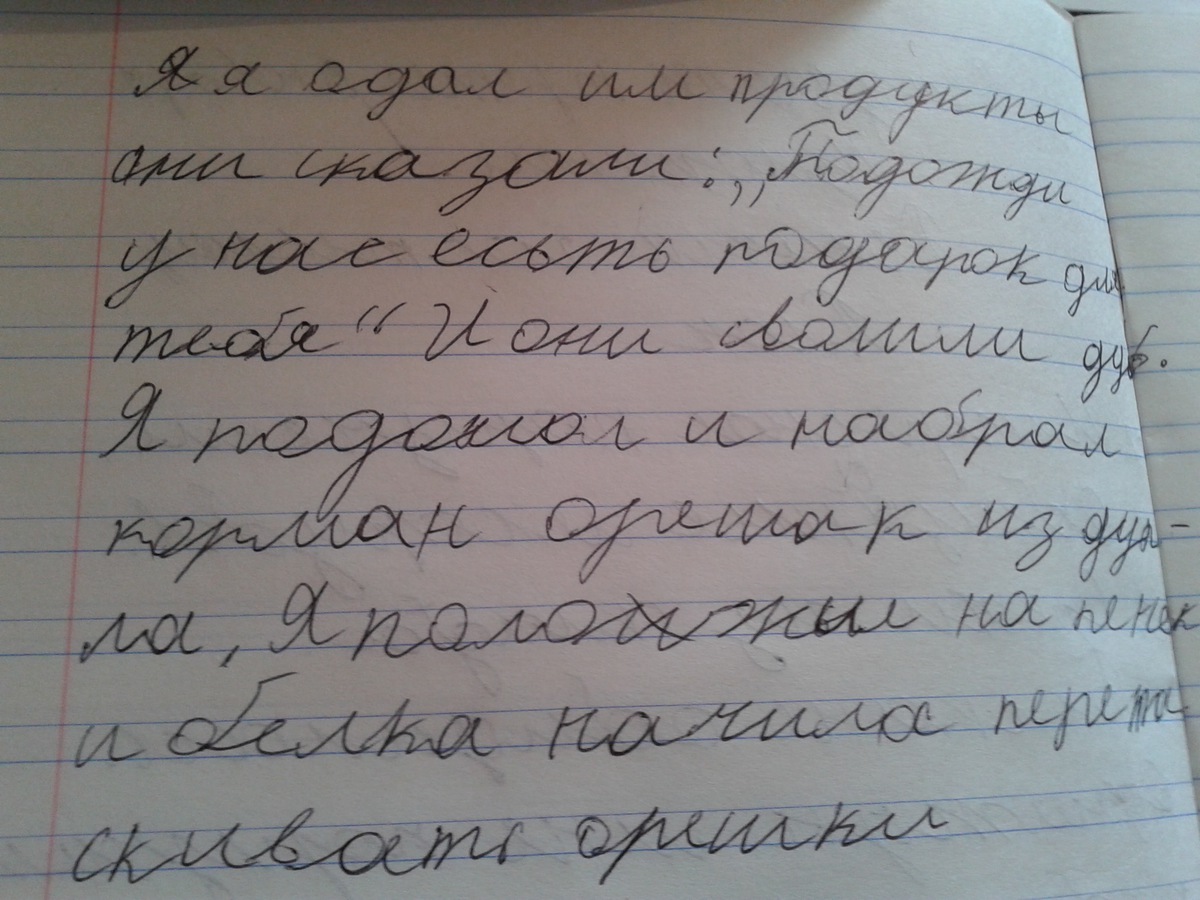 Я я одал им продукты
они сказали: „Подожди
у нас есьть подарок для
тебя“ И они свалили дуб.
Я подожол и набрал
корман орешак из дуп-
ла, Я положыл на пенек
и белка начила перета
скивать орешки